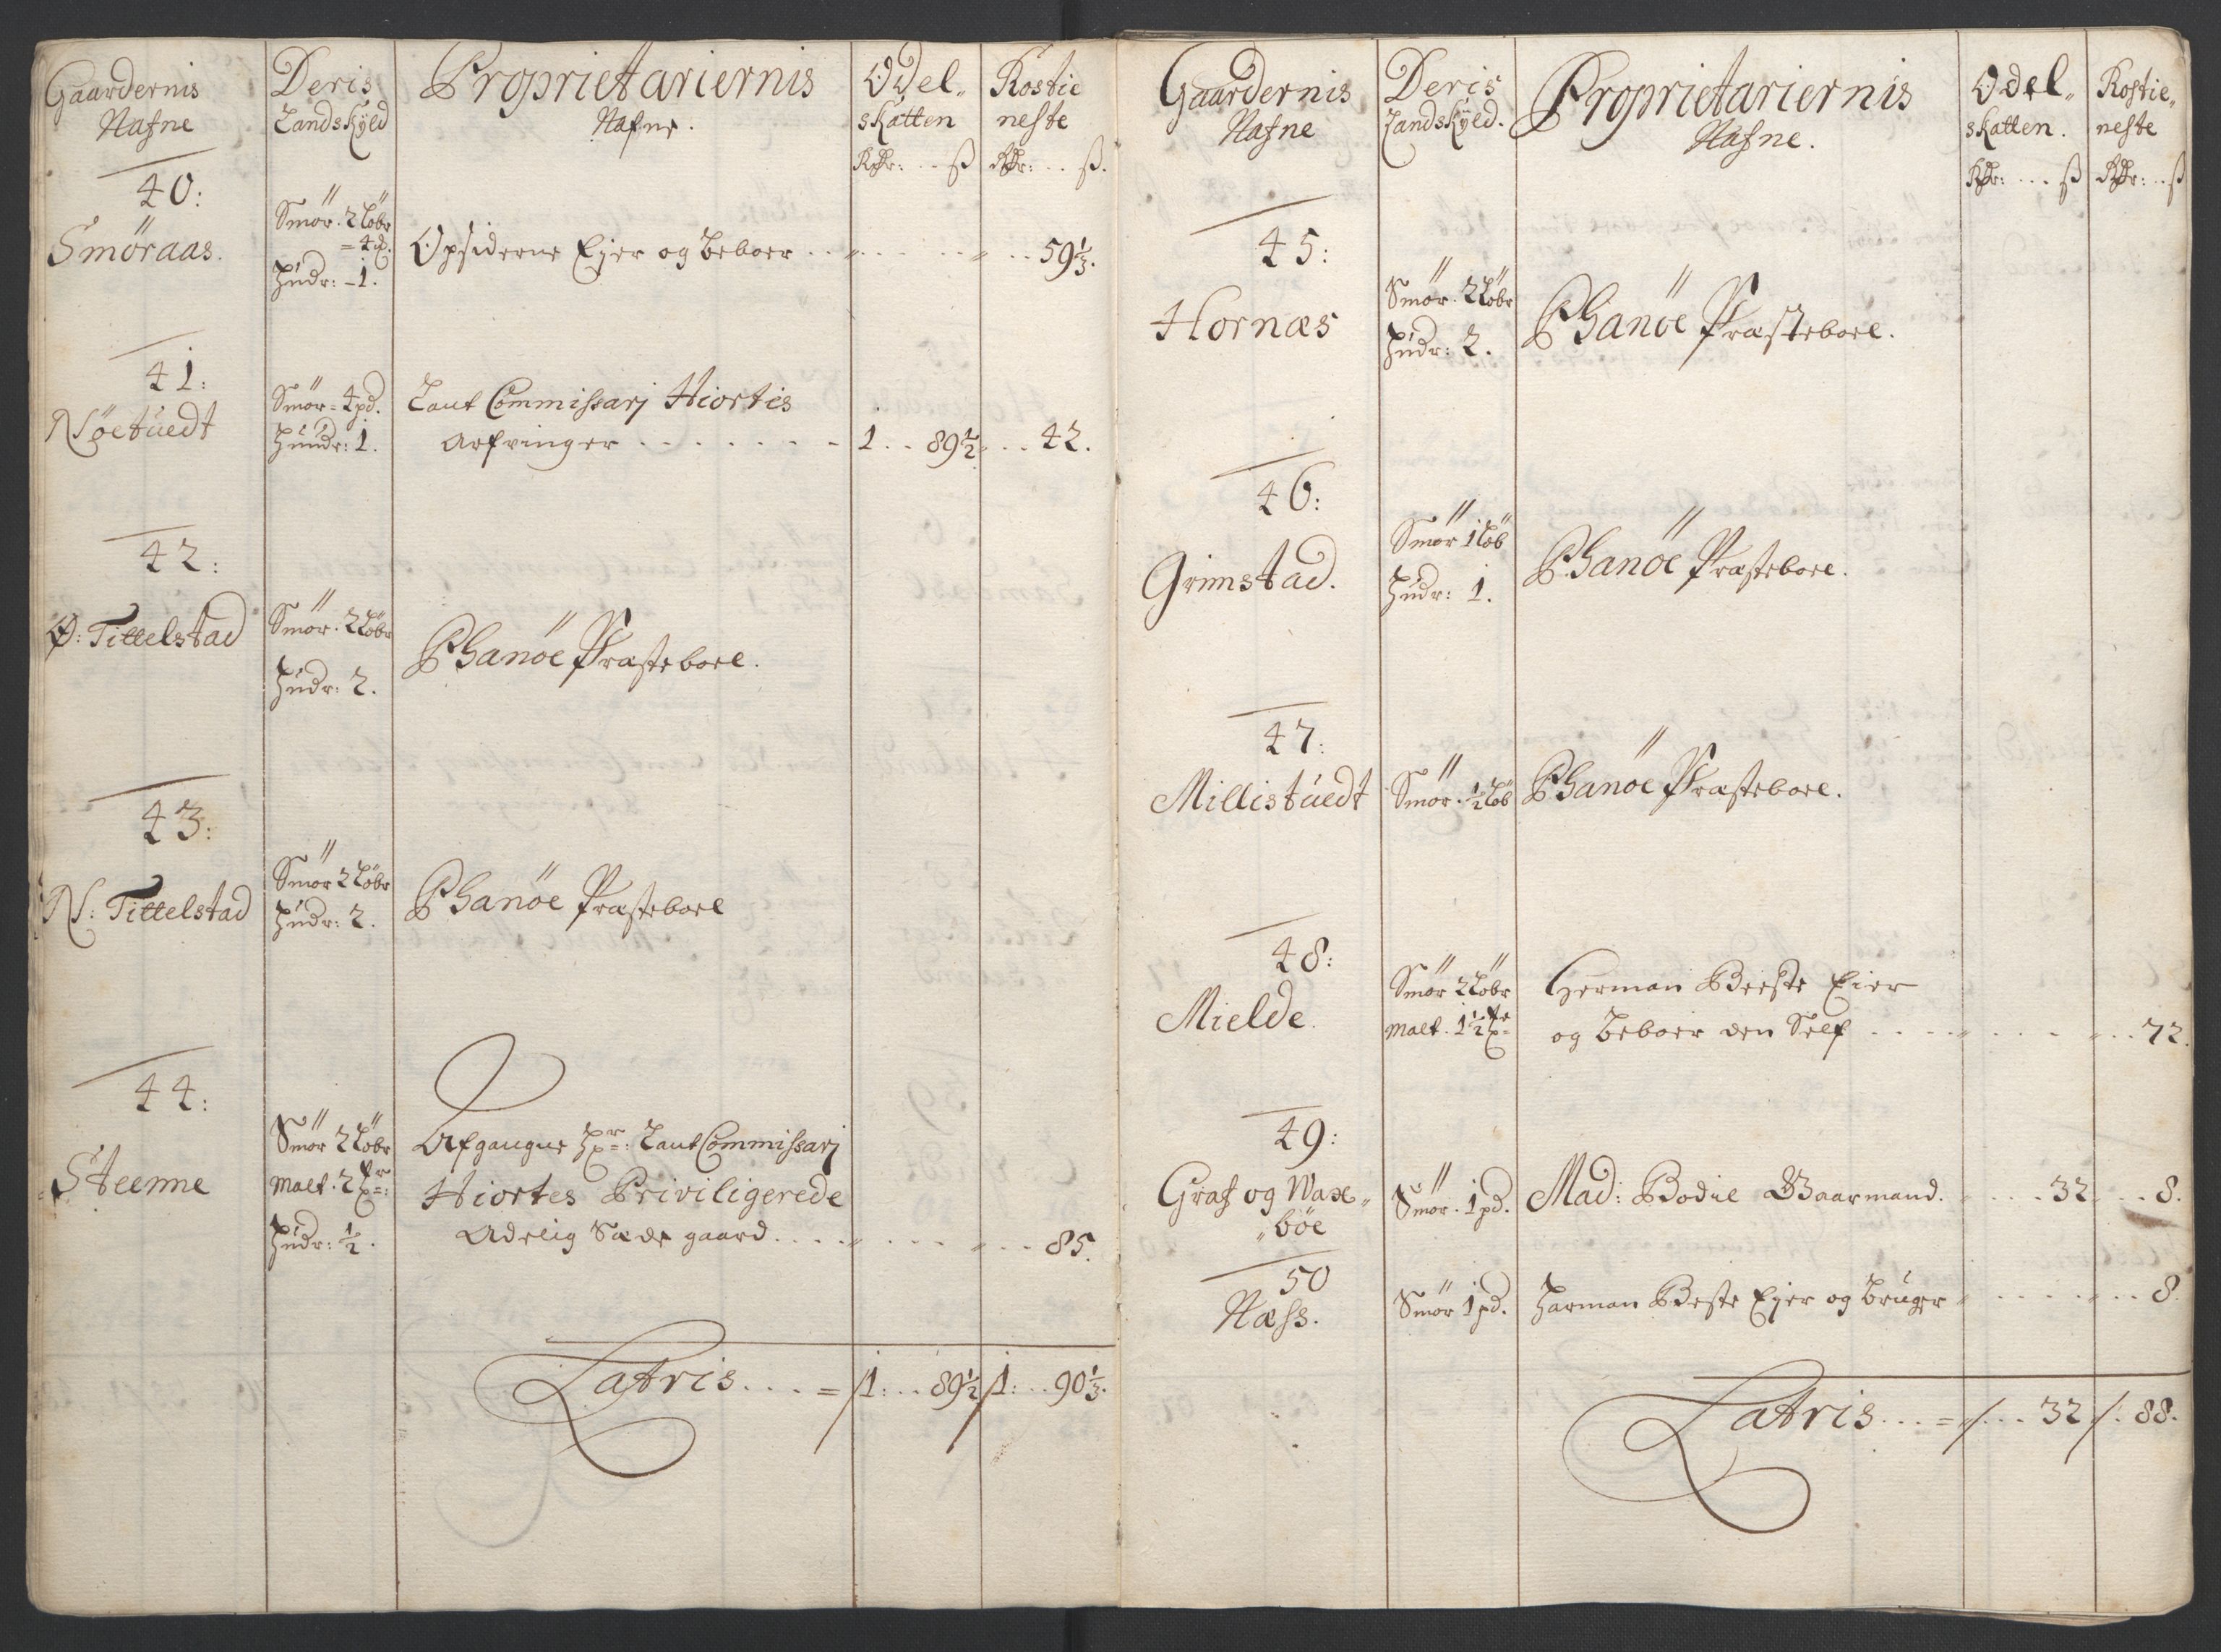 Gaardernis
Nafne
Deris
Landskÿld
Proprietariernis
Nafne.
Odel„
skatten
Rdr: .. ß
Rostie
neste
Rdr: .. ß.
40:
Smöraas.
Smör. 2 Löbr
= 4 d.
Hudr: - 1.
Opsiderne Ejer og beboer .. „ . . . . „ . . 59⅓.
41:
Nöetuedt
Smör = 4 pd.
Hundr: 1.
Laut Commissarj Hiortes
Arfvinger . . . . . . . 1 . . 89½ „ . . 42.
42:
Ø: Tittelstad
Smör. 2 Löbr
Hudr: 2.
Phanöe Præsteboel.
43:
N: Tittelstad
Smör 2 Löbr
Hudr: 2.
Phanöe Præsteboel
44:
Steenne
Smör 2 Löbr
Malt. 2
Hudr: ½.
Afgangne Hr: Laut Commissarj
Hiortes Priviligerede
Adelig Sæde gaard . . . . „ . . . „ . . 85.
Latris . . . = / 1: . . 89½ / 1: . . 90⅓.
Gaardernis
Nafne
Deris
Landskÿld.
Proprietariernis
Nafne.
Odel„
skatten.
Rdr: ... ß
Rostie„
neste
Rdr: .. ß
45:
Hornæs
Smör. 2 Löbr
Hudr: 2.
Phanöe Præsteboel.
46:
Grimstad.
Smör 1 Löb
Hudr: 1.
Phanöe Præsteboel.
47:
Millistuedt
Smör. ½ Löb
Phanöe Præsteboel.
48:
Mielde.
Smör 2 Löbr
Malt. 1½
Herman Beeste Eier
og beboer den Self . . . . „ . . . „ . . 72.
49:
Graf og Waxe„
„böe
Smör. 1 pd.
Mad: Bodil Baarmand. „ . . . 32 . . . 8.
50
Næss.
Smör 1 pd.
Harman Beste Ejer og bruger „ . . . . „ . . 8
Latris . . . = „ / . . . 32 / : 88.